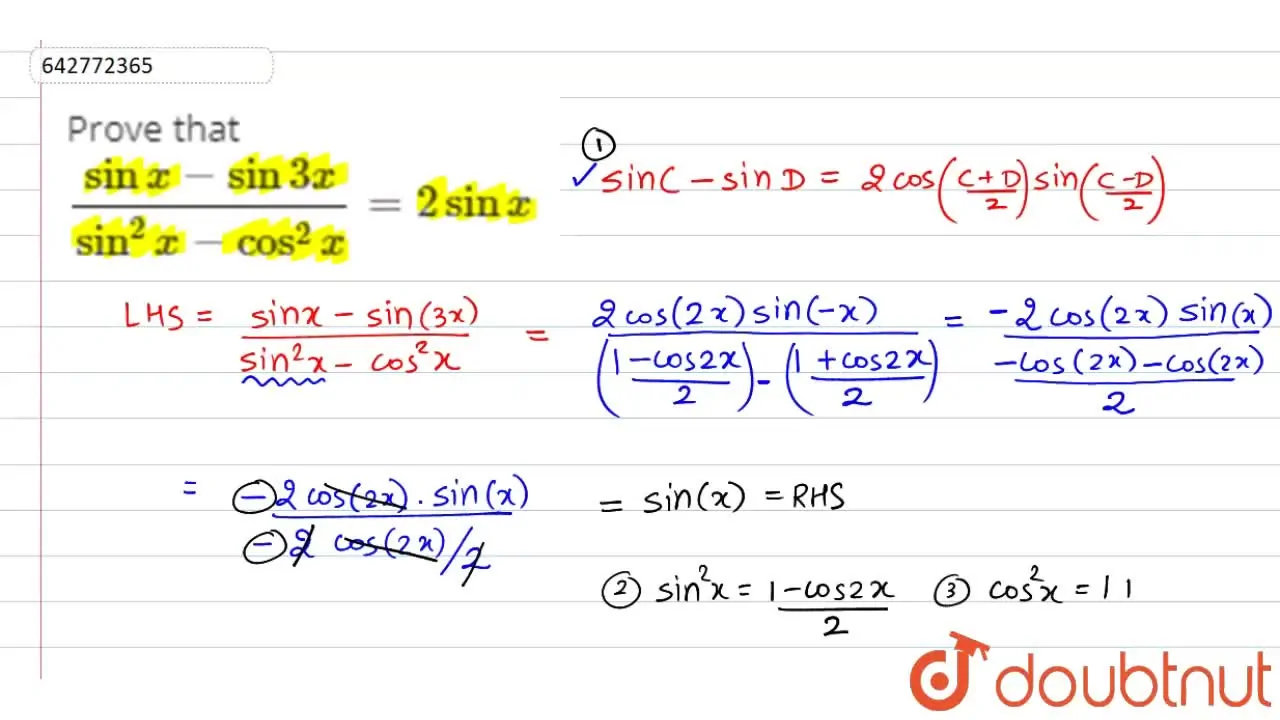 642772365
Prove that
\frac{\sin x - \sin 3x}{\sin^2 x - \cos^2 x} = 2 \sin x
① ✓ sinC - sin D = 2cos(\frac{C+D}{2}) sin(\frac{C-D}{2})
LHS = \frac{sinx - sin(3x)}{sin^2x - cos^2x} = \frac{2cos(2x) sin(-x)}{(\frac{1-cos2x}{2}) - (\frac{1+cos2x}{2})} = \frac{-2cos(2x) sin(x)}{\frac{-cos(2x)-cos(2x)}{2}}
= \frac{-2cos(2x).sin(x)}{-2 cos(2x)/2} = sin(x) = RHS
② sin^2x = \frac{1-cos2x}{2} ③ cos^2x = 1 1
doubtnut